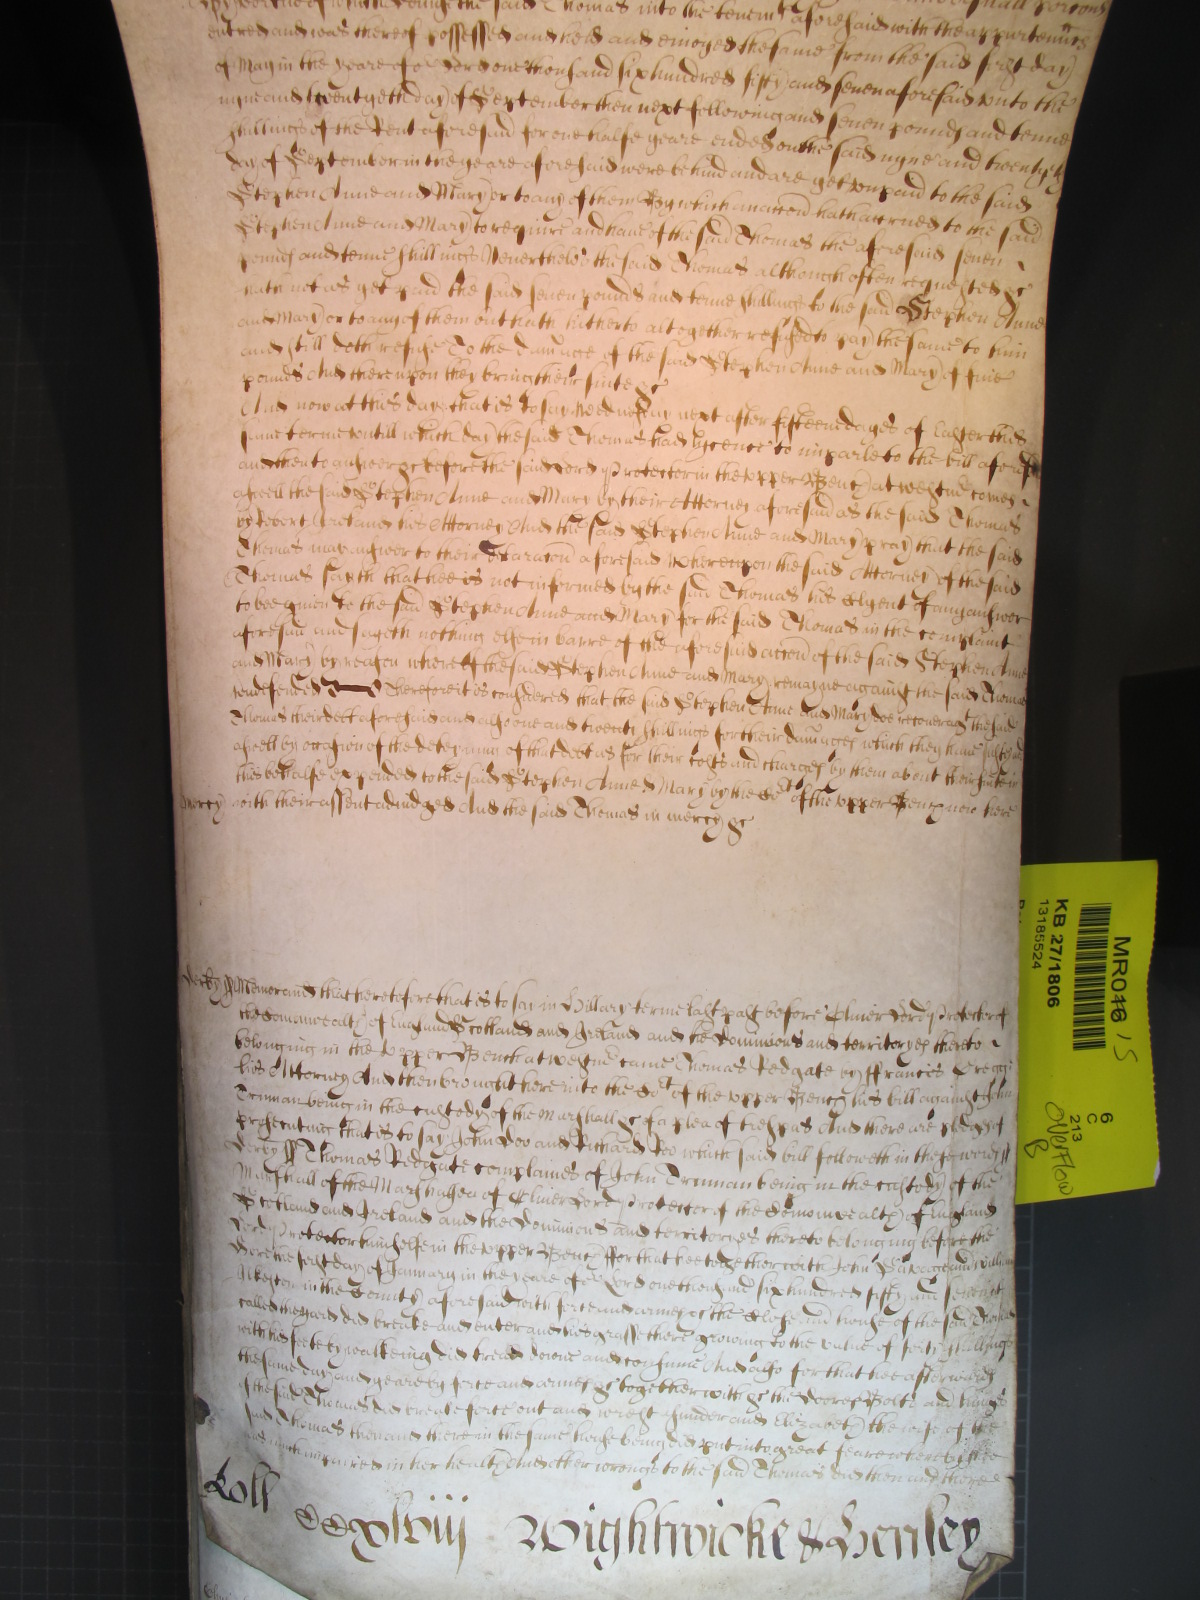 entred and was thereof possessed and held and enioyed the same from the said first day
of May in the yeare of our Lord one thousand six hundred fifty and seaven aforesaid unto the
nyne and twentyeth day of September then next following and seven pounds and tenne
shillings of the Rent aforesaid for one halfe yeare ended on the said nyne and twentyeth
day of September in the yeare aforesaid were behind and are yet unpaid to the said
Stephen Anne and Mary or to any of them By which an accon hath accrued to the said
Stephen Anne and Mary to require and have of the said Thomas the aforesaid seven
pounds and tenne shillings Neverthelesse the said Thomas although often requested &c
hath not as yet paid the said seven pounds and tenne shillings to the said Stephen Anne
and Mary or to any of them but hath hitherto altogether refused to pay the same to them
and still doth refuse To the damage of the said Stephen Anne and Mary of five
pounds And thereupon they bring their suite &c
And now at this day that is to say Wednesday next after fifteene dayes of Easter this
same terme untill which day the said Thomas had lycence to imparle to the bill aforesaid
and then to answer &c before the said Lord Protector in the upper Bench at Westmr comes
aswell the said Stephen Anne and Mary by their Attorney aforesaid as the said Thomas
by Robert his Attorney And the said Stephen Anne and Mary pray that the said
Thomas may answer to their declaracon aforesaid Whereupon the said Attorney of the said
Thomas sayth that hee is not informed by the said Thomas his Clyent of any answer
to bee given to the said Stephen Anne and Mary for the said Thomas in the complaint
aforesaid and sayeth nothing else in barre of the aforesaid accon of the said Stephen Anne
and Mary by reason whereof the said Stephen Anne and Mary remayne against the said Thomas
undefended Therefore it is considered that the said Stephen Anne and Mary doe recover agt the said
Thomas their debt aforesaid and also one and twenty shillings for their damages which they have susteyned
aswell by occasion of the deteyning of that debt as for their costs and charges by them about their suite in
this behalfe expended to the said Stephen Anne & Mary by the Cot of the upper Bench now here
Mercy with their assent adiudged And the said Thomas in mercy &c
Derby ss Memorand that heretofore that is to say in Hillary terme last past before Oliver Lord Protector of
the Comonwealth of England Scotland and Ireland and the Dominions and territoryes thereto
belonging in the upper Bench at Westmr came Thomas Redgate by ffrancis Gregge
his Attorney And then brought here into the Cot of the upper Bench his bill against John
Trueman being in the custody of the Marshall &c of a plea of trespas And there are pledges of
prosecuting that is to say John Doo and Richard Roo which said bill followeth in these words ss
Derby ss Thomas Redgate complaines of John Trueman being in the custody of the
Marshall of the Marshalsea of Oliver Lord Protector of the Comonwealth of England
Scotland and Ireland and the Dominions and territoryes thereto belonging before the
Lord Protector himselfe in the upper Bench ffor that hee together with John Savage and William
the first day of January in the yeare of or Lord one thousand six hundred fifty and seven at
Ilkeston in the County aforesaid with force and armes &c the Close and house of the said Thomas
called the yard did breake and enter and his grasse there growing to the value of forty shillings
with his feete by walkeing did tread downe and consume And also for that hee afterwards
the same day and yeare by force and armes &c together with &c the doores Bolts and hinges
of the said Thomas did breake force out and wrest asunder and Elizabeth the wife of the
said Thomas then and there in the same house being did put into great feare whereby shee
was much impaired in her health And other wrongs to the said Thomas did then and there
Roll CCxlviij Wightwicke & Henley
MR046 / 15
KB 27/1806
13185524
6
C
213
Overflow
8